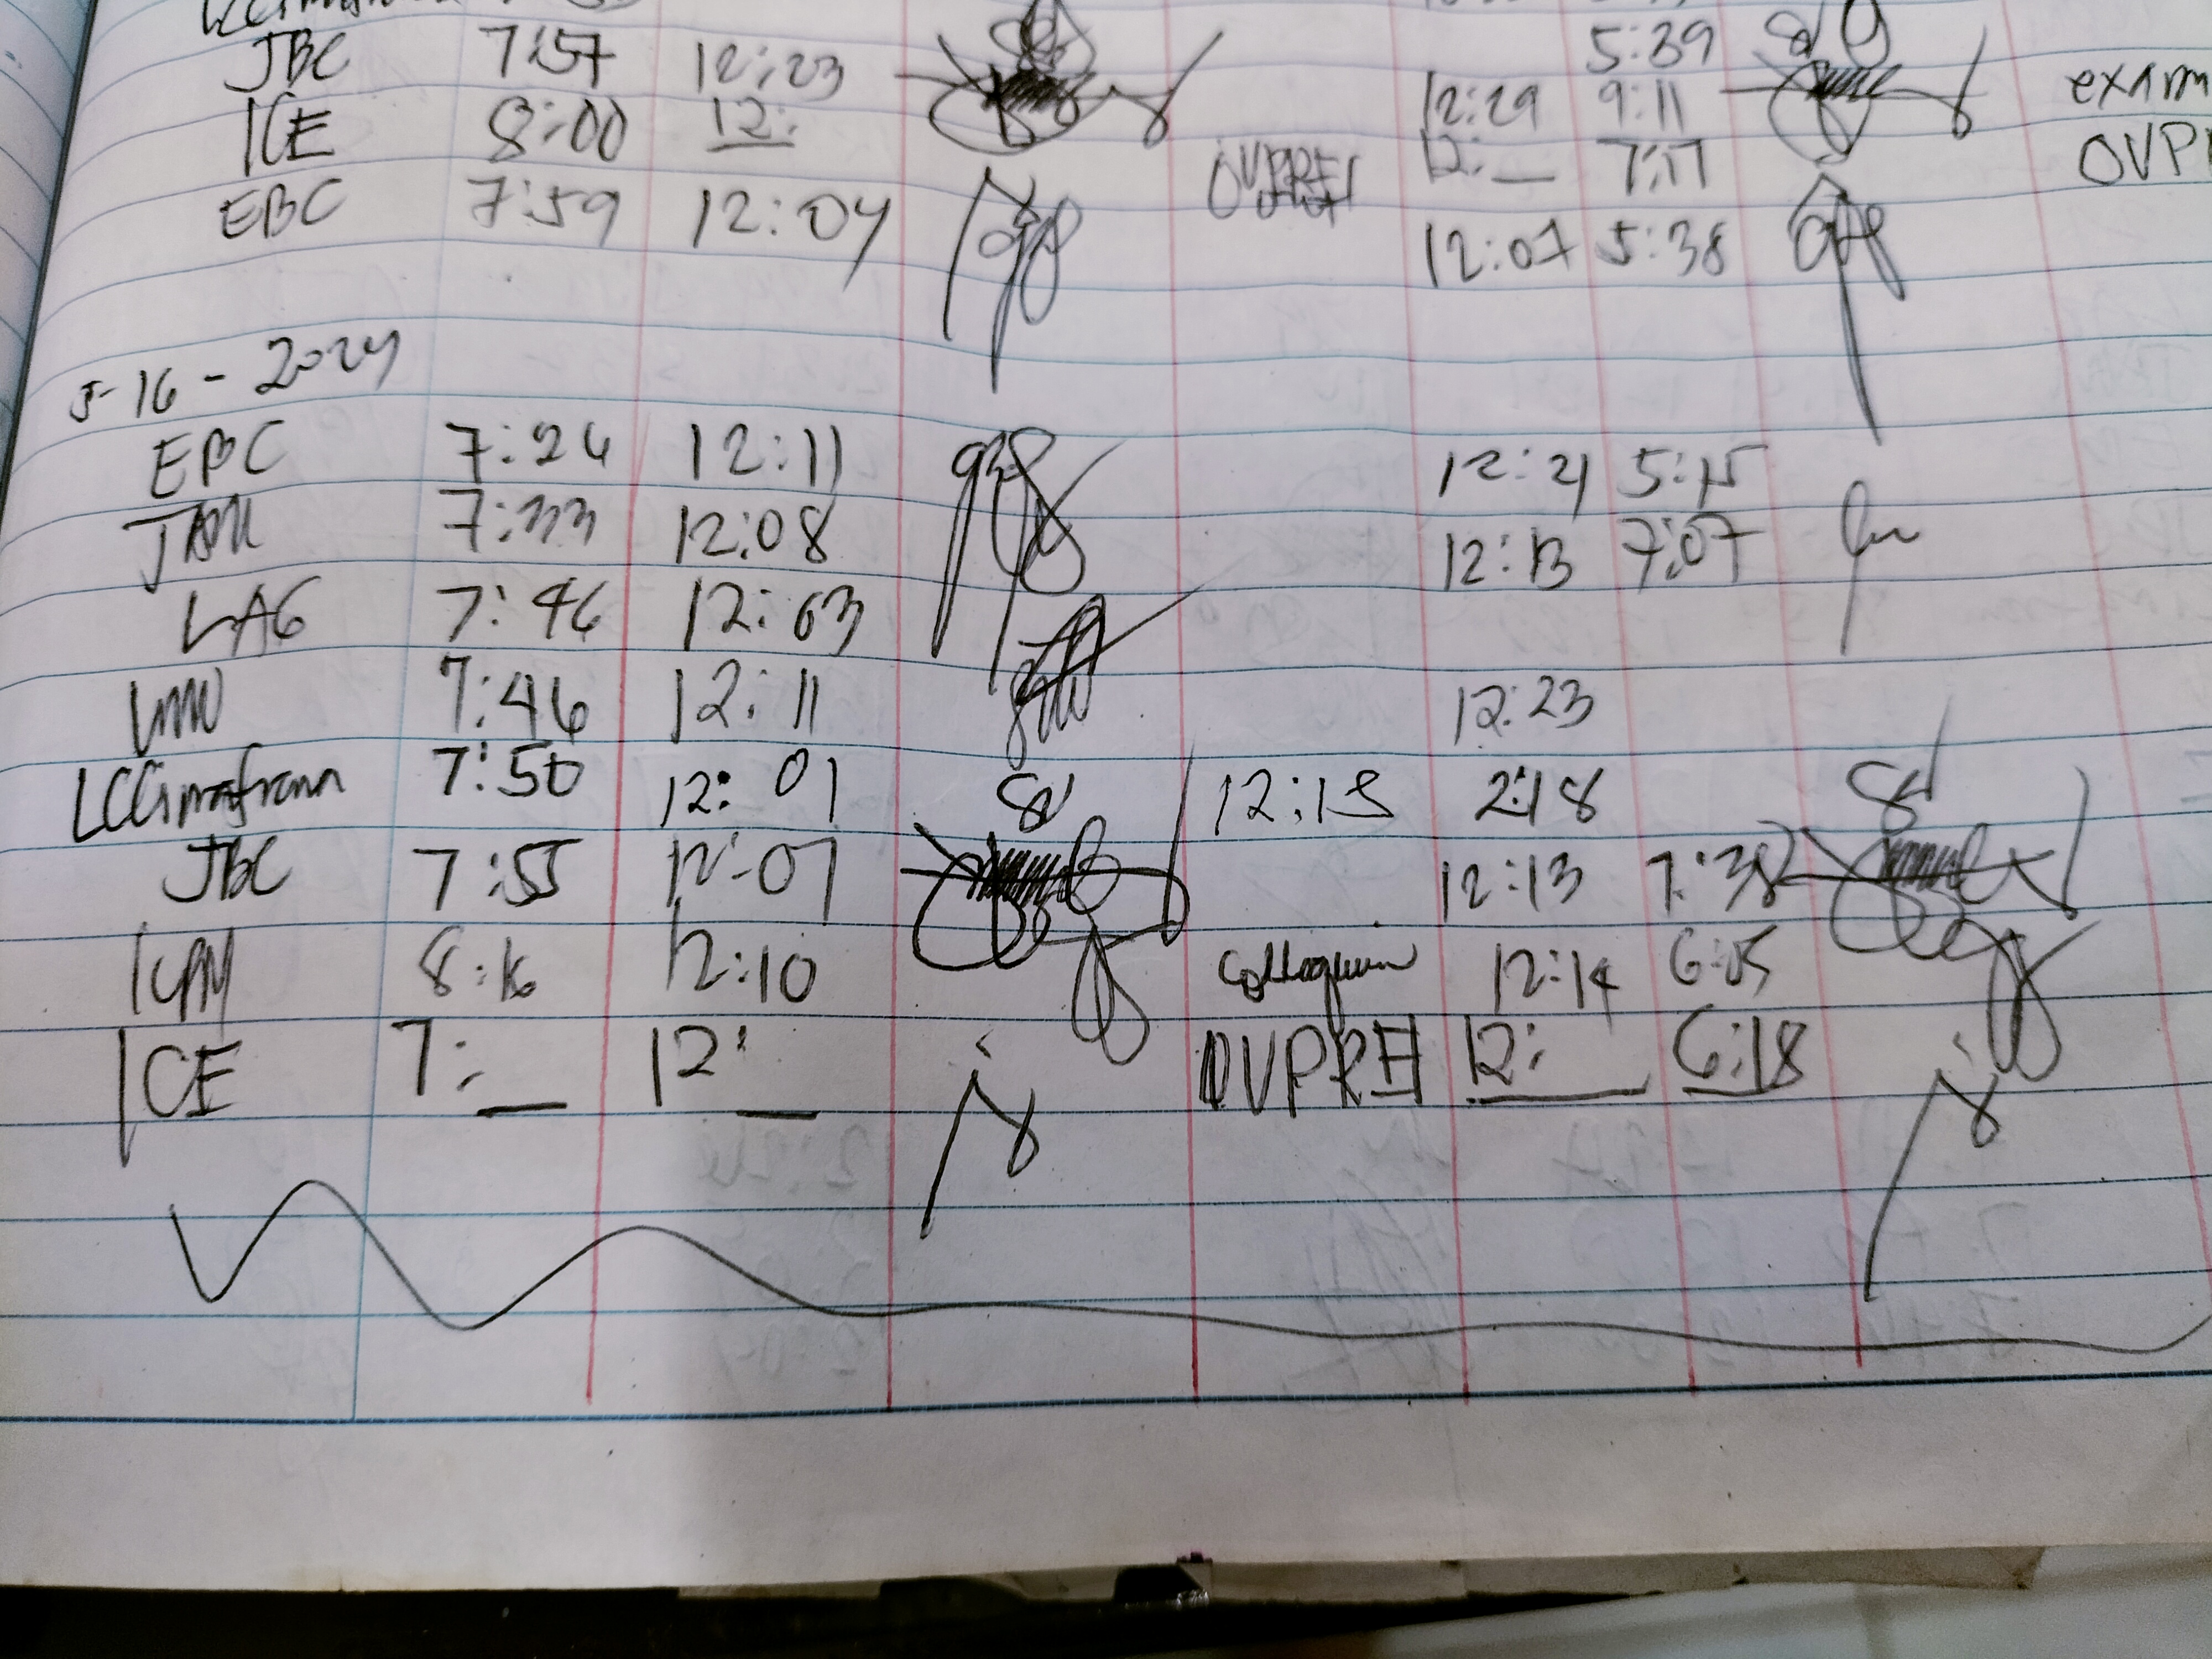 JBC 7:57 12:23 5:39
ICE 8:00 12: 12:29 9:11 exam
EBC 7:59 12:04 OVPREI 12:__ 7:17 OVP
12:07 5:38
5-16-2024
EBC 7:24 12:11 12:21 5:15
7:33 12:08 12:13 7:07
LAG 7:46 12:03
7:46 12:11 12:23
7:50 12:01 12:15 2:18
JBC 7:55 12:07 12:13 7:38
8:16 12:10 Colloquium 12:14 6:05
ICE 7:__ 12:__ OVPREI 12:__ 6:18